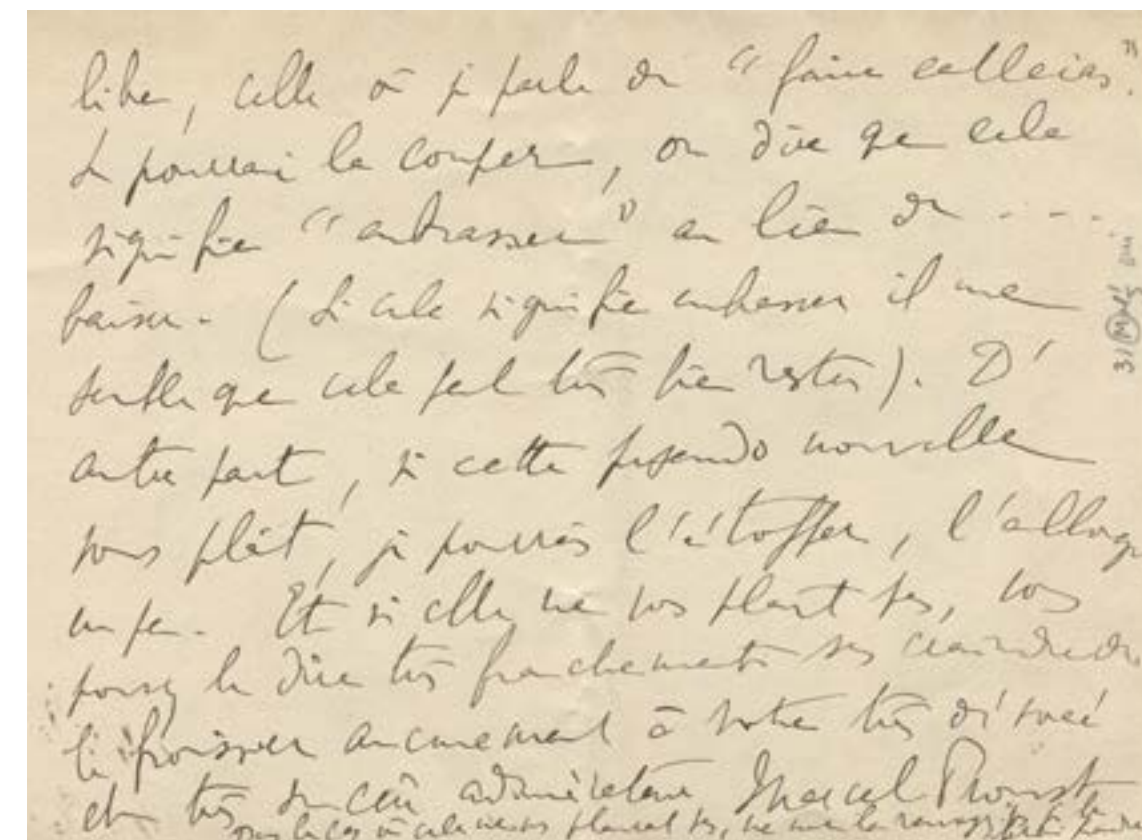 libre, celle où je parle de "faire catleias."
Je pourrai la couper, ou dire que cela
signifie "embrasser" au lieu de ....
baiser. (Si cela signifie embrasser il me
semble que cela peut très bien rester). D'
autre part, si cette pseudo nouvelle
vous plaît, je pourrais l'étoffer, l'allonger
un peu. Et si elle ne vous plaît pas, vous
pouvez le dire très franchement sans craindre de
froisser aucunement à votre très dévoué
et très sincère admirateur Marcel Proust
Dans le cas où cela ne vous plairait pas, ne me la renvoyez pas